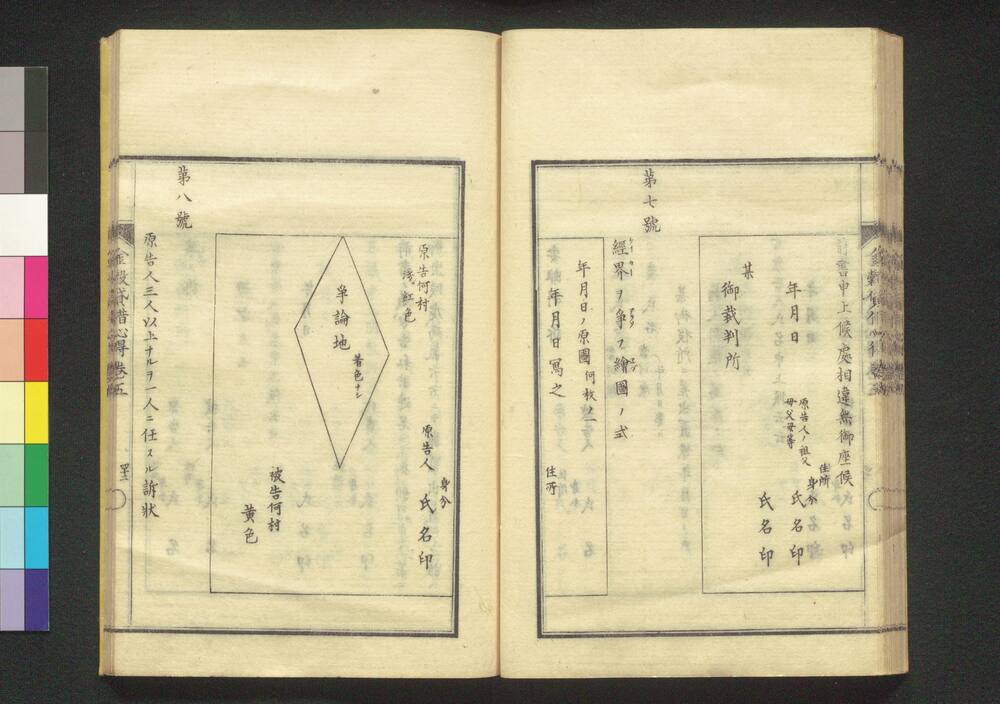 訴書申上候處相違無御座候
年月日
住所
身分
氏名印
原告人ノ祖父
母父母等
氏名印
某
御裁判所
第七號
經界ヲ爭フ繪圖ノ式
年月日ノ原圖何枚ノ一
年月日寫之
住所
原告何村
淺紅色
原告人
身分
氏名印
爭論地
着色ナシ
被告何村
黄色
第八號
原告人三人以上ナルヲ一人ニ任スル訴状
金穀貸借心得 卷五
四十二